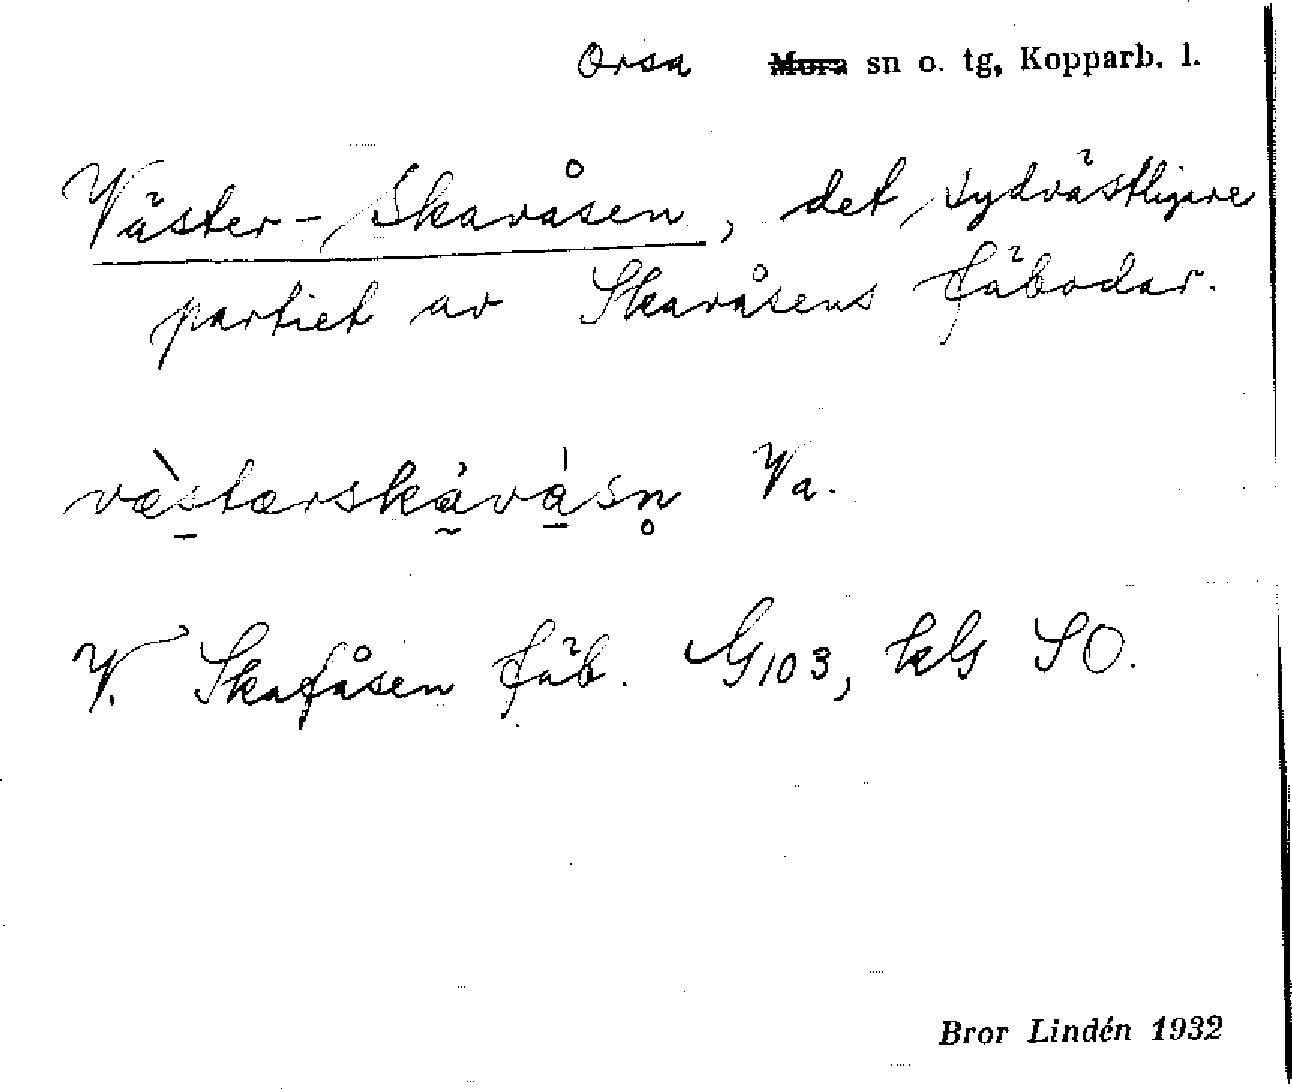 Orsa ~~Mora~~ sn o. tg, Kopparb. l.
Väster-Skavåsen, det sydvästligare
partiet av Skavåsens fäbodar.
væ̀stærskàvȧ́sn̥ Va.
V. Skafåsen fäb. G103, hkG SO.
Bror Lindén 1932